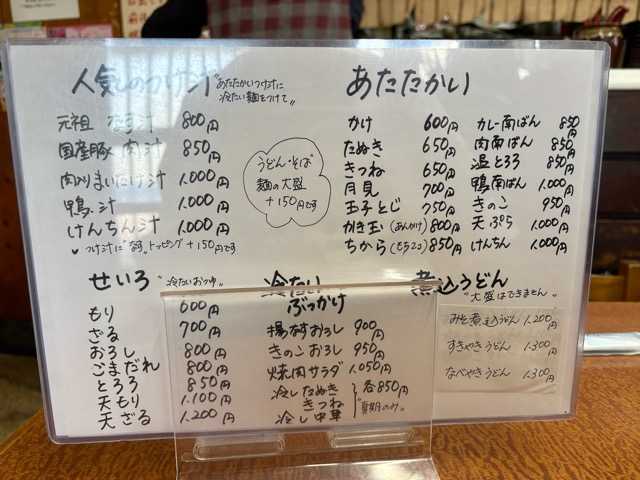 人気のつけ汁
"あたたかいつけ汁に
冷たい麺をつけて"
元祖 なす汁 800円
国産豚 肉汁 850円
肉入りまいたけ汁 1.000円
鴨汁 1.000円
けんちん汁 1.000円
つけ汁に"なす"トッピング +150円です
うどん・そば
麺の大盛
+150円です
あたたかい
かけ 600円
たぬき 650円
きつね 650円
月見 700円
玉子とじ 750円
かき玉(あんかけ) 800円
ちから(もち2コ) 850円
カレー南ばん 850円
肉南ばん 850円
温とろろ 850円
鴨南ばん 1.000円
きのこ 950円
天ぷら 1.000円
けんちん 1.000円
せいろ "冷たいおつゆ"
もり 600円
ざる 700円
おろし 800円
ごまだれ 800円
とろろ 850円
天もり 1.100円
天ざる 1.200円
冷たい
ぶっかけ
揚なすおろし 900円
きのこおろし 950円
焼肉サラダ 1.050円
冷したぬき
きつね
冷し中華
各850円
"夏期のみ"
煮込うどん
"大盛はできません"
みそ煮込うどん 1.200円
すきやきうどん 1.300円
なべやきうどん 1.300円